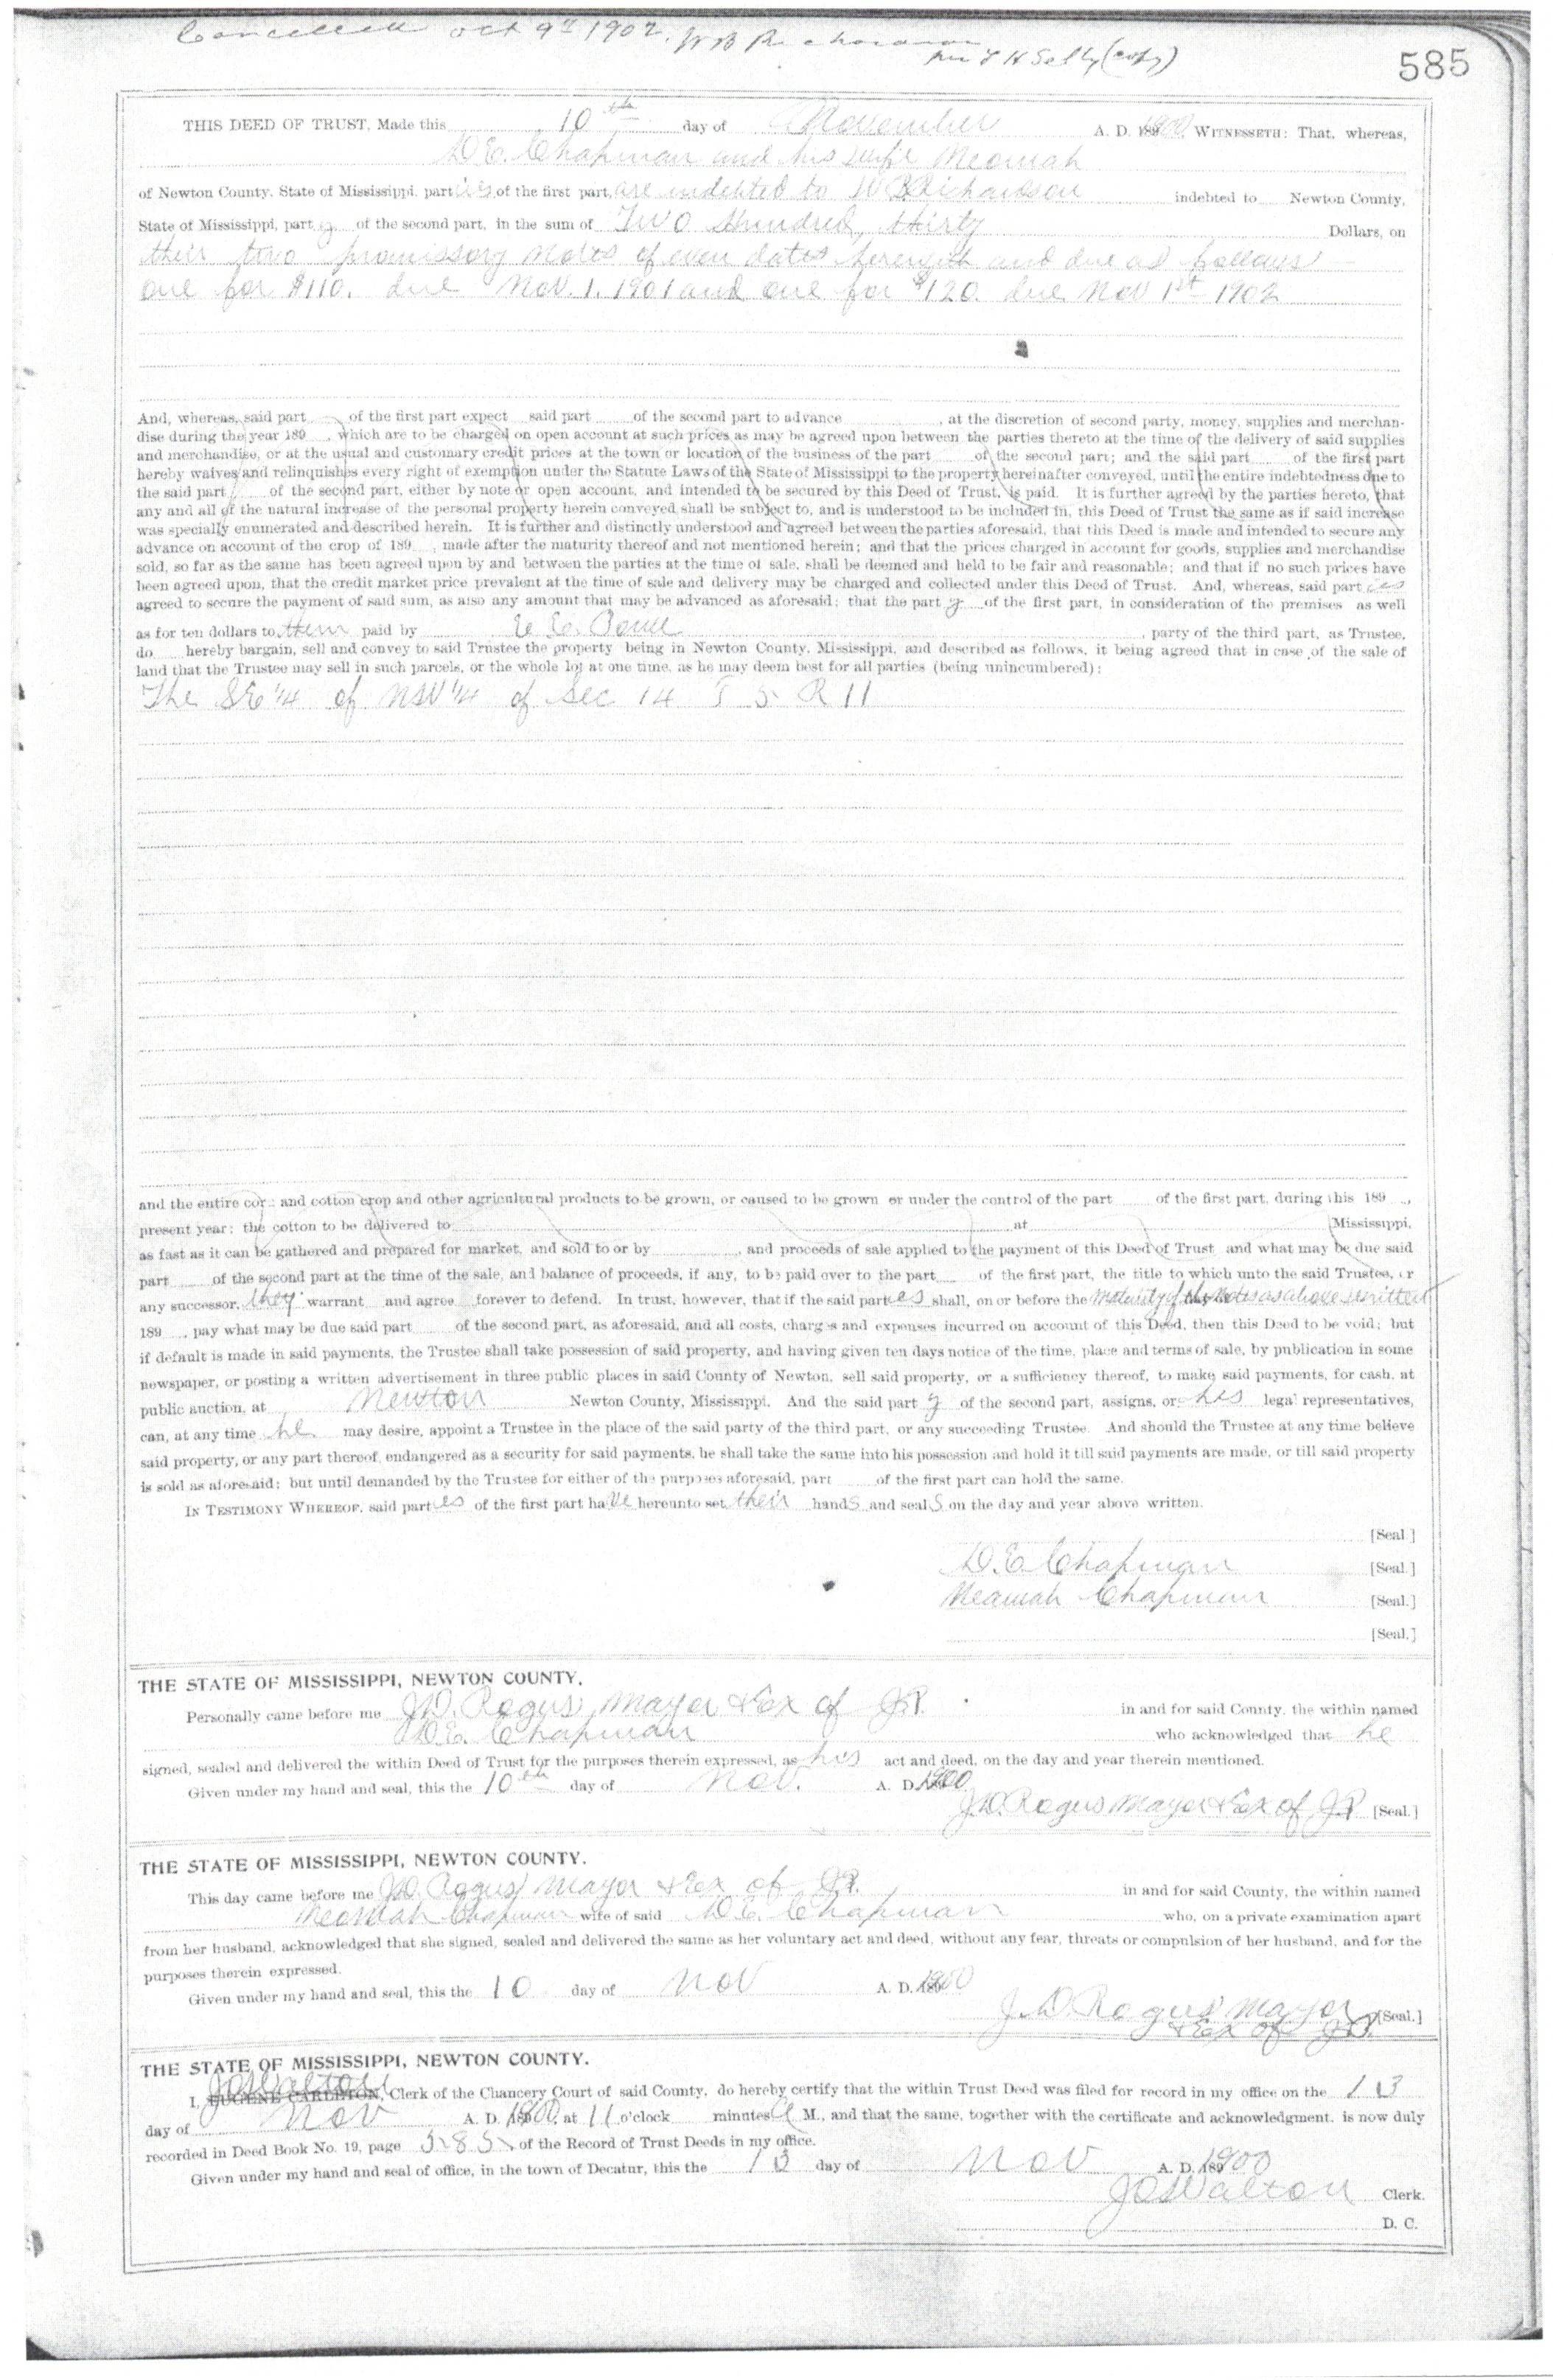 Cancelled Oct 9th 1902. W B Richardson
per T H Selby (copy)
585
THIS DEED OF TRUST, Made this 10th day of November A. D. 1900, WITNESSETH: That, whereas,
D.E. Chapman and his wife Neamiah
of Newton County, State of Mississippi, parties of the first part, are indebted to W B Richardson indebted to Newton County,
State of Mississippi, party of the second part, in the sum of Two Hundred thirty Dollars, on
their two promissory notes of even dates herewith and due as follows
one for $110. due Nov. 1. 1901 and one for $120. due Nov 1st 1902
And, whereas, said part of the first part expect said part of the second part to advance , at the discretion of second party, money, supplies and merchan-
dise during the year 189 , which are to be charged on open account at such prices as may be agreed upon between the parties thereto at the time of the delivery of said supplies
and merchandise, or at the usual and customary credit prices at the town or location of the business of the part of the second part; and the said part of the first part
hereby waives and relinquishes every right of exemption under the Statute Laws of the State of Mississippi to the property hereinafter conveyed, until the entire indebtedness due to
the said part of the second part, either by note or open account, and intended to be secured by this Deed of Trust, is paid. It is further agreed by the parties hereto, that
any and all of the natural increase of the personal property herein conveyed shall be subject to, and is understood to be included in, this Deed of Trust the same as if said increase
was specially enumerated and described herein. It is further and distinctly understood and agreed between the parties aforesaid, that this Deed is made and intended to secure any
advance on account of the crop of 189 , made after the maturity thereof and not mentioned herein; and that the prices charged in account for goods, supplies and merchandise
sold, so far as the same has been agreed upon by and between the parties at the time of sale, shall be deemed and held to be fair and reasonable; and that if no such prices have
been agreed upon, that the credit market price prevalent at the time of sale and delivery may be charged and collected under this Deed of Trust. And, whereas, said parties
agreed to secure the payment of said sum, as also any amount that may be advanced as aforesaid; that the party of the first part, in consideration of the premises as well
as for ten dollars to them paid by , party of the third part, as Trustee,
do hereby bargain, sell and convey to said Trustee the property being in Newton County, Mississippi, and described as follows, it being agreed that in case of the sale of
land that the Trustee may sell in such parcels, or the whole lot at one time, as he may deem best for all parties (being unincumbered):
The SE 1/4 of NW 1/4 of Sec 14 T 5 R 11
and the entire corn and cotton crop and other agricultural products to be grown, or caused to be grown or under the control of the part of the first part, during this 189 ,
present year; the cotton to be delivered to at Mississippi,
as fast as it can be gathered and prepared for market, and sold to or by , and proceeds of sale applied to the payment of this Deed of Trust and what may be due said
part of the second part at the time of the sale, and balance of proceeds, if any, to be paid over to the part of the first part, the title to which unto the said Trustee, or
any successor, they warrant and agree forever to defend. In trust, however, that if the said parties shall, on or before the maturity of the notes as above written
189 , pay what may be due said part of the second part, as aforesaid, and all costs, charges and expenses incurred on account of this Deed, then this Deed to be void; but
if default is made in said payments, the Trustee shall take possession of said property, and having given ten days notice of the time, place and terms of sale, by publication in some
newspaper, or posting a written advertisement in three public places in said County of Newton, sell said property, or a sufficiency thereof, to make said payments, for cash, at
public auction, at Newton Newton County, Mississippi. And the said party of the second part, assigns, or his legal representatives,
can, at any time he may desire, appoint a Trustee in the place of the said party of the third part, or any succeeding Trustee. And should the Trustee at any time believe
said property, or any part thereof, endangered as a security for said payments, he shall take the same into his possession and hold it till said payments are made, or till said property
is sold as aforesaid; but until demanded by the Trustee for either of the purposes aforesaid, part of the first part can hold the same.
IN TESTIMONY WHEREOF, said parties of the first part have hereunto set their hands and seals on the day and year above written.
[Seal.]
D.E. Chapman [Seal.]
Neamiah Chapman [Seal.]
[Seal.]
THE STATE OF MISSISSIPPI, NEWTON COUNTY.
Personally came before me J.D. Rogus Mayor & Ex of J.P. in and for said County, the within named
D.E. Chapman who acknowledged that he
signed, sealed and delivered the within Deed of Trust for the purposes therein expressed, as his act and deed, on the day and year therein mentioned.
Given under my hand and seal, this the 10th day of Nov. A. D. 1900
J.D. Rogus Mayor & Ex of JP [Seal.]
THE STATE OF MISSISSIPPI, NEWTON COUNTY.
This day came before me J.D. Rogus Mayor & Ex of J.P. in and for said County, the within named
Neamiah Chapman wife of said D.E. Chapman who, on a private examination apart
from her husband, acknowledged that she signed, sealed and delivered the same as her voluntary act and deed, without any fear, threats or compulsion of her husband, and for the
purposes therein expressed.
Given under my hand and seal, this the 10 day of Nov A. D. 1900
J.D. Rogus Mayor [Seal.]
& Ex of J.P.
THE STATE OF MISSISSIPPI, NEWTON COUNTY.
I, JO Walton EUGENE CARLETON, Clerk of the Chancery Court of said County, do hereby certify that the within Trust Deed was filed for record in my office on the 13
day of Nov A. D. 1900, at 11 o'clock minutes A M., and that the same, together with the certificate and acknowledgment, is now duly
recorded in Deed Book No. 19, page 585 of the Record of Trust Deeds in my office.
Given under my hand and seal of office, in the town of Decatur, this the 13 day of Nov A. D. 1900
JO Walton Clerk.
D. C.